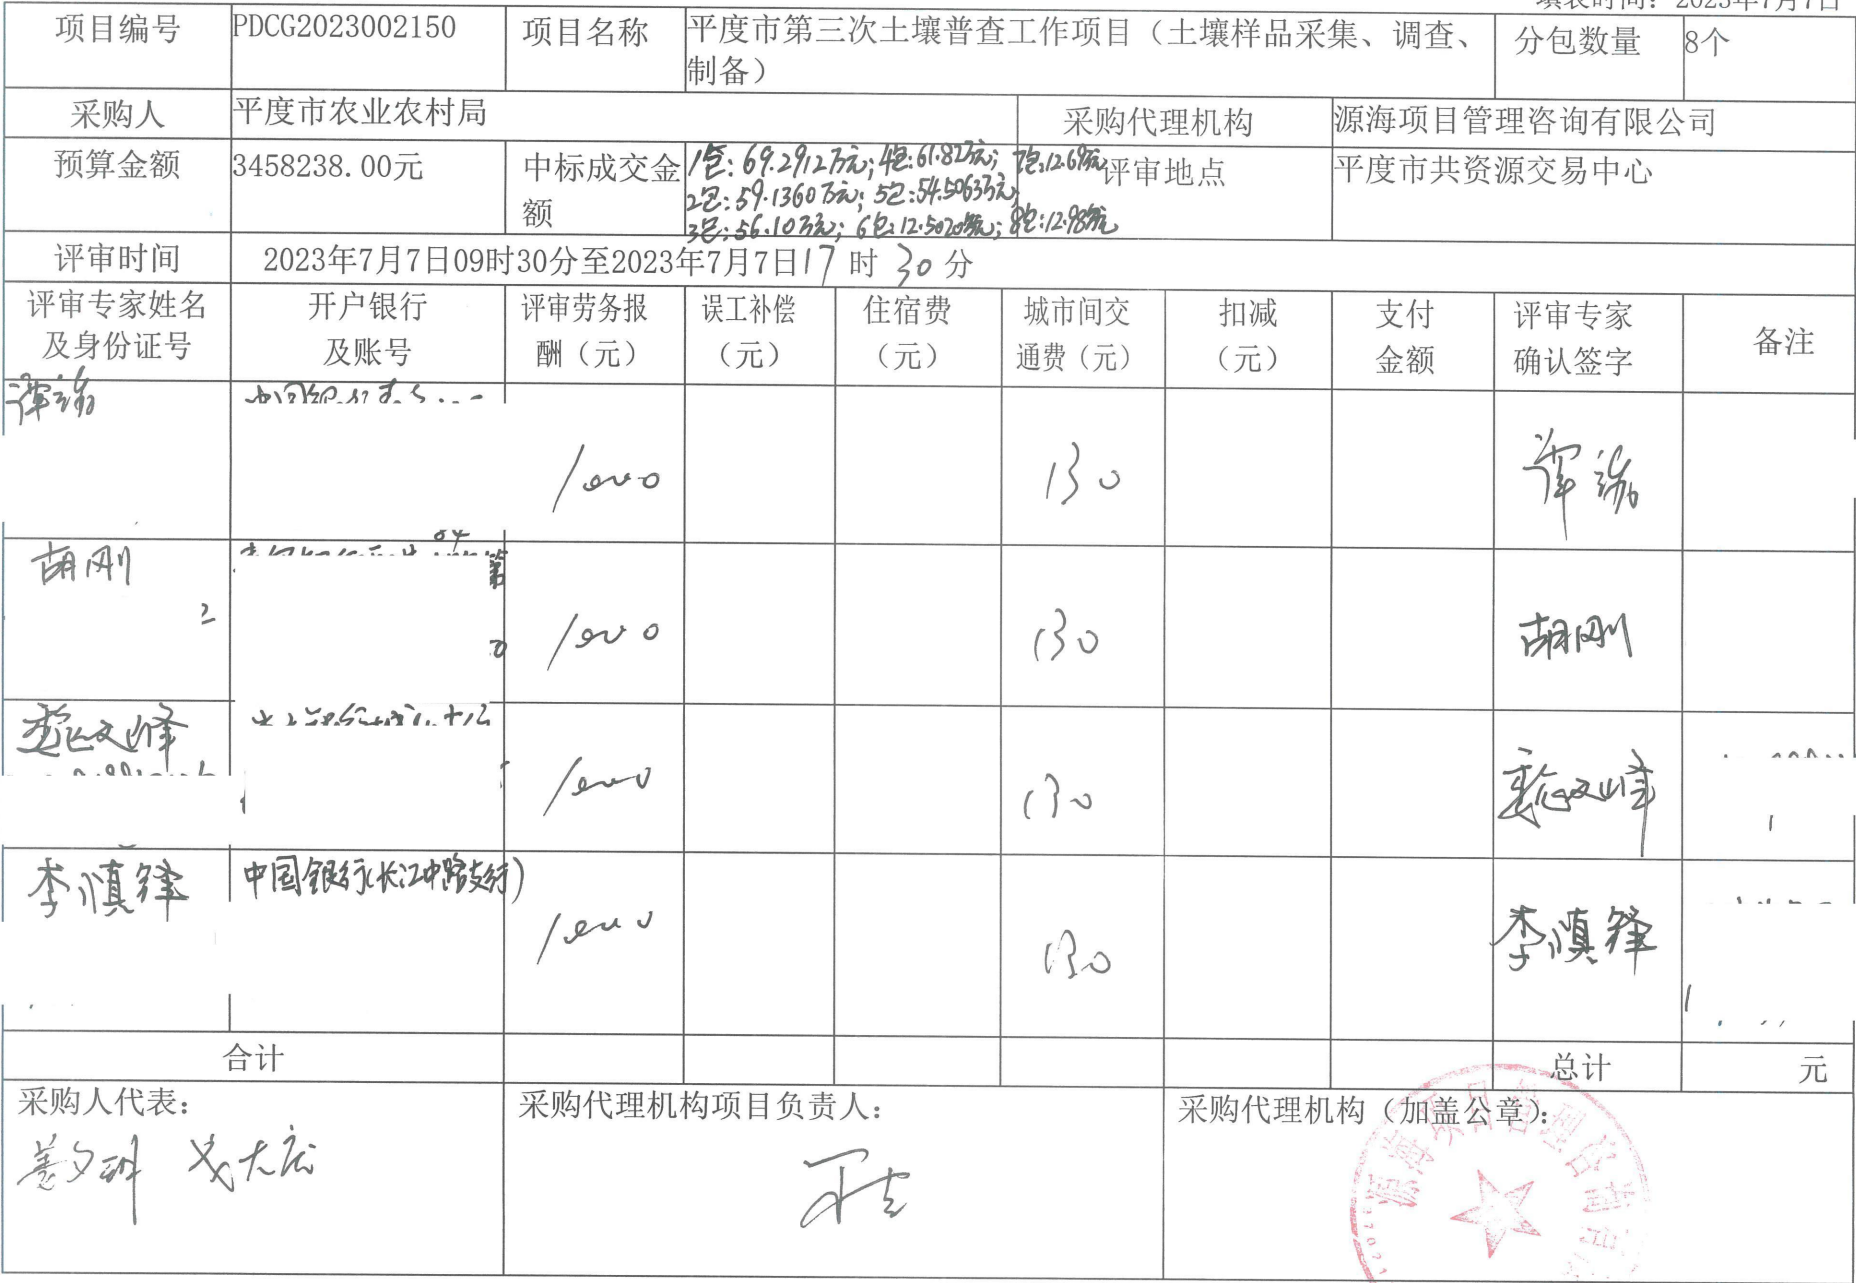 填表时间：2023年7月7日
项目编号 PDCG2023002150 项目名称 平度市第三次土壤普查工作项目（土壤样品采集、调查、制备） 分包数量 8个
采购人 平度市农业农村局 采购代理机构 源海项目管理咨询有限公司
预算金额 3458238.00元 中标成交金额 评审地点 平度市共资源交易中心
1包：69.2912万元；4包：61.82万元；7包：12.69万元
2包：59.1360万元；5包：54.5063万元
3包：56.10万元；6包：12.5020万元；8包：12.98万元
评审时间 2023年7月7日09时30分至2023年7月7日17时30分
评审专家姓名及身份证号 开户银行及账号 评审劳务报酬（元） 误工补偿（元） 住宿费（元） 城市间交通费（元） 扣减（元） 支付金额 评审专家确认签字 备注
1000 130
胡刚 1000 130 胡刚
文峰 1000 130 文峰
李慎锋 中国银行（长江中路支行） 1000 130 李慎锋
合计 总计 元
采购人代表： 采购代理机构项目负责人： 采购代理机构（加盖公章）：
源海项目管理咨询有限公司